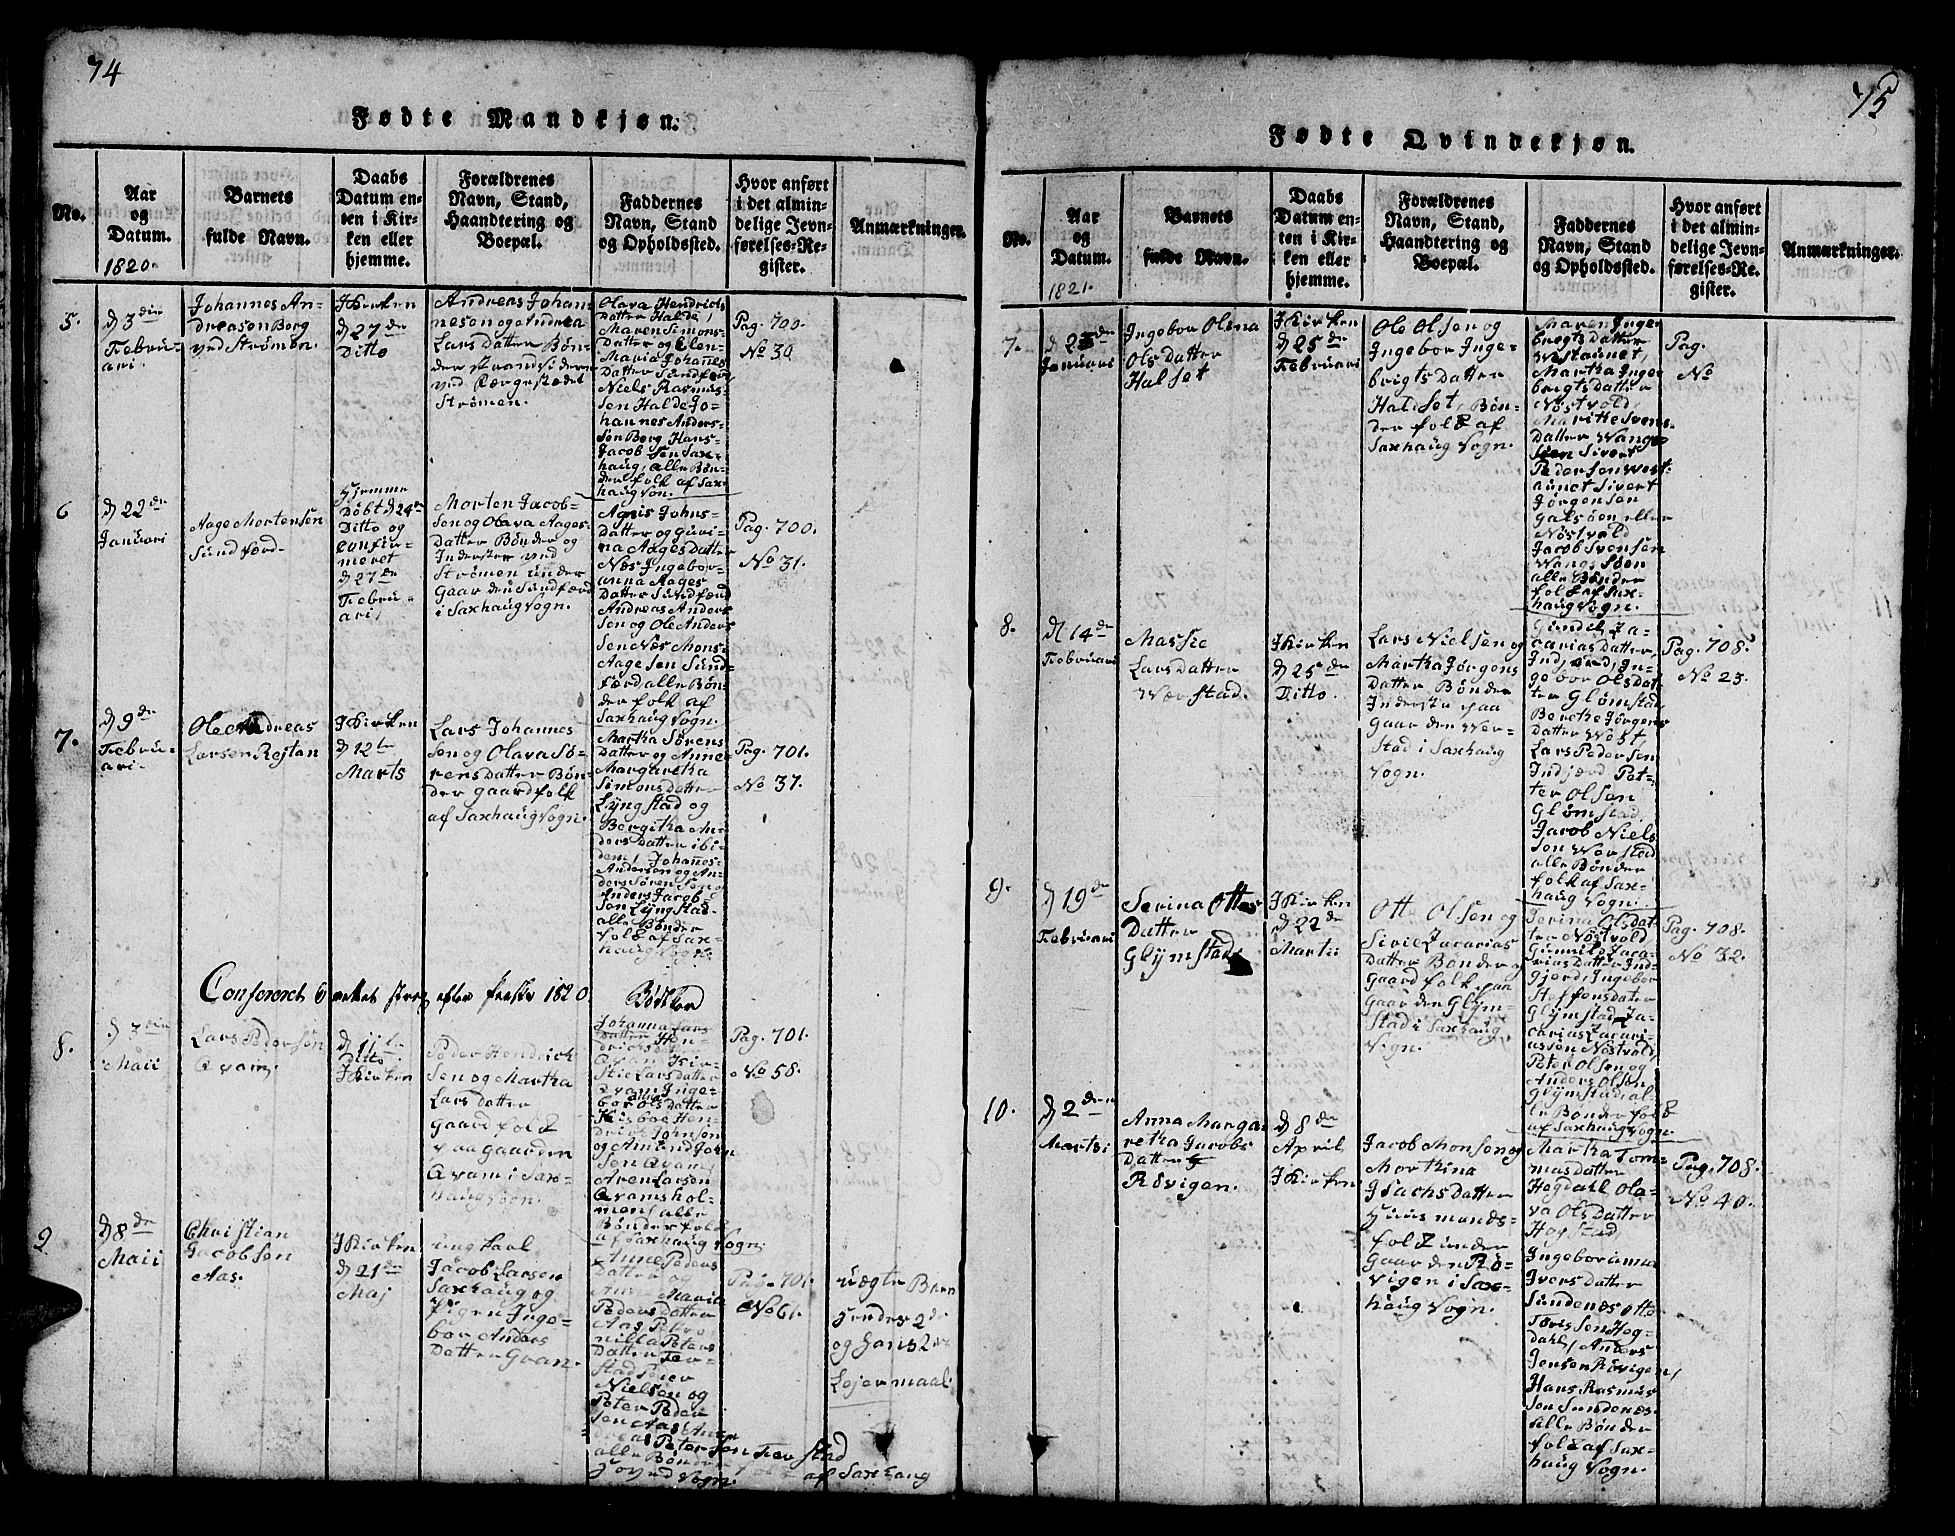 74
Fødte Mandkjøn.
No.
Aar
og
Datum.
1820.
Barnets
fulde Navn.
Daabs
Datum en-
ten i Kir-
ken eller
hjemme.
Forældrenes
Navn, Stand,
Haandtering og
Boepæl.
Faddernes
Navn, Stand
og Opholdssted.
Hvor anført
i det almin-
delige Jevn-
førelses-Re-
gister.
Anmærkninger.
5.
d 3die
Februu-
ari.
Johannes An-
dreasen Borg
ved Strömen.
I Kirken
d 27de
Ditto
Andreas Johan-
nesen og Andrea
Lars Datter Bön-
der Strandsiddere
ved Kergestædet
Strömen.
Olava Hendrichs
Datter Halde,
Maren Simons-
Datter og Elen-
Maria Johanes
Datter Sundfær
Niels Rasmus-
sen Halde Jo-
hannes Anders-
sen Berg Hans-
Jacobsen Sax-
haug, alle Bön-
derfolk af Sax-
haug Sogn.
Pag. 700.
No 30.
6
d 22de
Januari
Aage Mortensen
Sundförd.
Hjemme
Döbt d 24de
Ditto og
confir-
meret
d 27de
Februu-
ari,
Morten Jacob-
sen og Olava Aages-
Datter Bönder og
Inderster ved
Strömen under
Gaarden Sundfærd
i Saxhaug Sogn.
Agnis Johns-
Datter og Guri-
na Aages Datter
Næs Ingebor-
anna Aages
Datter Sundfærd
Andreas Anders
sen og Ole Anders
sen Næs Mons-
Aagesen Sund-
færd alle Bön-
derfolk af
Saxhaug Sogn.
Pag. 700.
No 31.
7.
d 9de
Februu-
ari.
Ole Andreas
Larsen Rejtan
I Kirken
d 12te
Marts
Lars Johannes
sen og Olava Sö-
rens Datter Bön-
der Gaardfolk
af Saxhaug Sogn.
Martha Sörens
Datter og Anne-
Margaretha
Simons Datter
Lyngstad og
Bergitha An-
ders Datter ibi-
dem, Johanes-
Andersen og An-
ders Sörensen og
Anders Jacob-
sen Lyngstad-
alle Bönder
folk af Sax-
haug Sogn.
Pag. 701.
No 37.
8.
d 3die
Maii
Lars Pedersön
Qvam.
d 11te
Ditto
I Kirken
Peder Hendrich
sen og Martha
Lars Datter
Gaardfolk
paa Gaarden
Qvam i Sax-
haug Sogn.
Johanna Lars
Datter Hen-
Qvam Kir-
stie Lars Datter
Qvam Inge-
bor Ols Datter
Husboe Hen-
drich Johnsen
og Amund John
sen Qvam,
Aren Larsen
Qvamshol-
men, alle
Bönderfolk
af Saxhaug Sogn.
Pag. 701.
No 58.
9
d 8de
Maii
Christian
Jacobsen
Aas.
I Kirken
d 21de
Maj
ungkaal
Jacob Larsen
Saxhaug og
Pigen Inge-
bor Anders
Datter Gran.
Anne Peders
Datter og
Maria
Peders Datter
Aas Petro-
nilla Peters
Datter Fer-
stad Peder
Nielsen og
Peter Peder
sen Aas An-
dreas Petersen Ferstad
alle Bönder
Sogn. af Saxhaug
Pag. 701.
No 61.
uægte Barn
hendes 2de
og hans 2de
Lejermaal.
75
Fødte Qvindekjøn.
No.
Aar
og
Datum.
1821.
Barnets
fulde Navn.
Daabs
Datum en-
ten i Kir-
ken eller
hjemme.
Forældrenes
Navn, Stand,
Haandtering og
Boepæl.
Faddernes
Navn, Stand
og Opholdssted.
Hvor anført
i det almin-
delige Jevn-
førelses-Re-
gister.
Anmærkninger.
7.
Januari
Ingebor Olina
Ols Datter
Halset
I Kirken
d 25de
Februari
Ole Olsen og
Ingebor Inge-
brigts Datter
Haldset, Bön-
derfolk af
Saxhaug Sogn.
Maren Inge-
brigts Datter
Westaunet,
Martha Inge-
brigts Datter
Nöstvold,
Maritte Svens-
Datter Wangs
Söen Sivert
Pedersen West-
aunet Sivert
Jörgensen
Galsöen eller
Nöstvold
Jacob Svensen
Wangsöen
alle Bönder
folk af Sax-
haug Sogn.
Pag.
No
8.
d 14de
Februari
Massie
Lars Datter
Werstad.
I Kirken
d 25de
Ditto.
Lars Nielsen og
Martha Jörgens
Datter Bönder
Inderster paa
Gaarden Wer-
stad i Saxhaug
Sogn.
Gunild Za-
carias Datter,
Indjærd, In-
gebor Ols Dat-
ter Glömstad
Berethe Jörgens
Datter Wöst
Lars Pedersen
Indjærd Pet-
ter Olsen
Glömstad
Jacob Niels
sen Werstad
alle Bönder
folk af Sax-
haug Sogn.
Pag. 708.
No 23.
9.
d 19de
Februari
Serina Ottes
Datter
Glymstad
I Kirken
d 22de
Martii
Otte Olsen og
Sivie Zacarias
Datter Bönder og
Gaardfolk paa
Gaarden Glym-
stad i Saxhaug
Sogn.
Serina Ols Dat-
ter Nöstvold
Gunild Zaca-
rias Datter Ind-
gjerd, Ingebor
Steffens Datter
Glymstad Za-
carias Zacari-
assen Nöstvold,
Peter Olsen og
Anders Olsen
Glymstad al-
le Bönderfolk
af Saxhaug Sogn.
Pag. 708.
No 32.
10.
d 2den
Martsi
Anna Marga-
retha Jacobs
Datter
Rövigen.
d 8de
April
I Kirken
Jacob Monsen og
Marthina
Isachs Datter
Huusmands-
folk under
Gaarden Rö-
vigen i Sax-
haug Sogn.
Martha Tom-
mas Datter
Hogdall Ola-
va Ols Datter
Hogstad,
Ingeboranna
Ivers Datter
Sundenes Otte
Törissen Hog-
dahl, Anders
Jensen Rövigen,
Hans Rasmus
sen Sundenes-
alle Bönder
folk af Sax-
haug Sogn.
Pag. 708.
No 40.